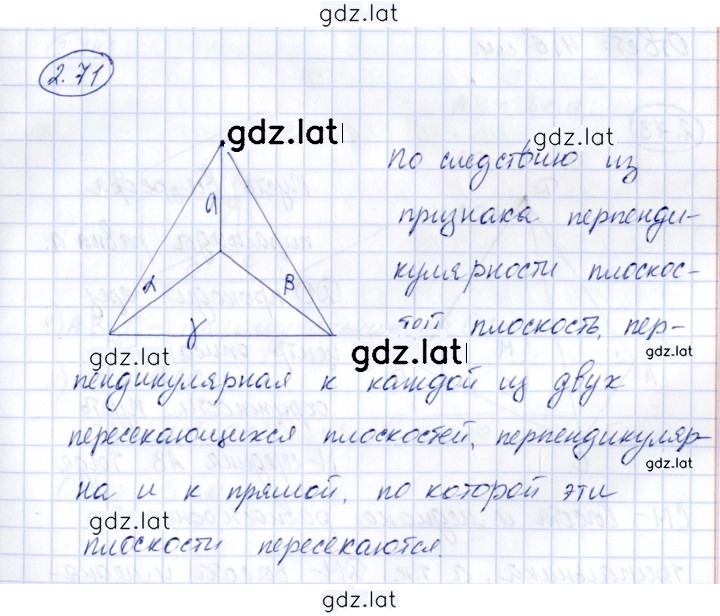 gdz.lat
2.71
gdz.lat
gdz.lat
По следствию из
a
признака перпенди-
α
β
кулярности плоскос-
γ
той плоскость, пер-
gdz.lat
gdz.lat
gdz.lat
пендикулярная к каждой из двух
пересекающихся плоскостей, перпендикуляр-
gdz.lat
на и к прямой, по которой эти
gdz.lat
плоскости пересекаются.
gdz.lat